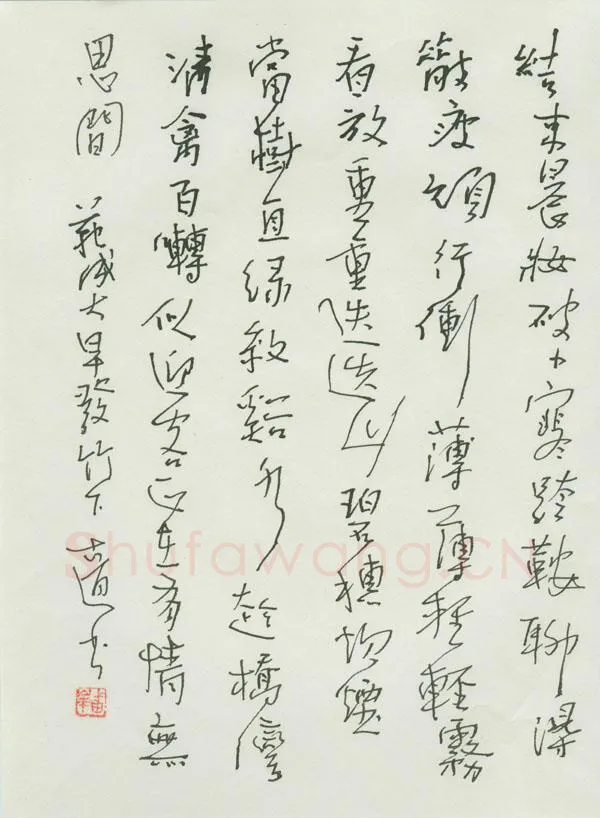 結束晨妝破小寒跨鞍聊得
散疲頑行衝薄薄輕輕霧
看放重重迭迭山碧穗炊煙
當樹直綠紋谿水趁橋灣
清禽百囀似迎客正在有情無
思間 范成大早發竹下 古道书
Shufawang.CN